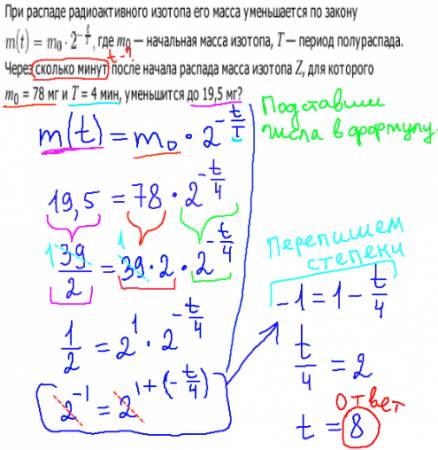 При распаде радиоактивного изотопа его масса уменьшается по закону
m(t) = m₀ · 2^(-t/T), где m₀ — начальная масса изотопа, T — период полураспада.
t - ?
Через сколько минут после начала распада масса изотопа Z, для которого
m₀ = 78 мг и T = 4 мин, уменьшится до 19,5 мг?
m(t) = m₀ · 2^(-t/T)
Подставим
числа в формулу.
19,5 = 78 · 2^(-t/4)
1 1
39/2 = 39 · 2 · 2^(-t/4)
1/2 = 2^1 · 2^(-t/4)
2^(-1) = 2^(1+(-t/4))
Перепишем
степени
-1 = 1 - t/4
t/4 = 2
ответ
t = 8